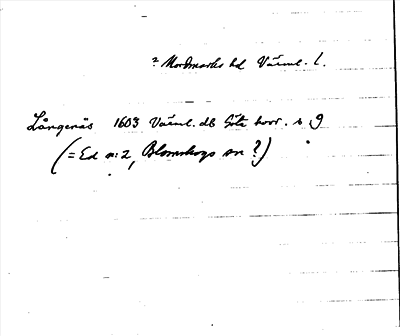 ? Nordmarks hd Värml. l.
Långenäs 1603 Värml. db Göta hovr. s 9
(= Ed nr 2, Blomskogs sn ?)